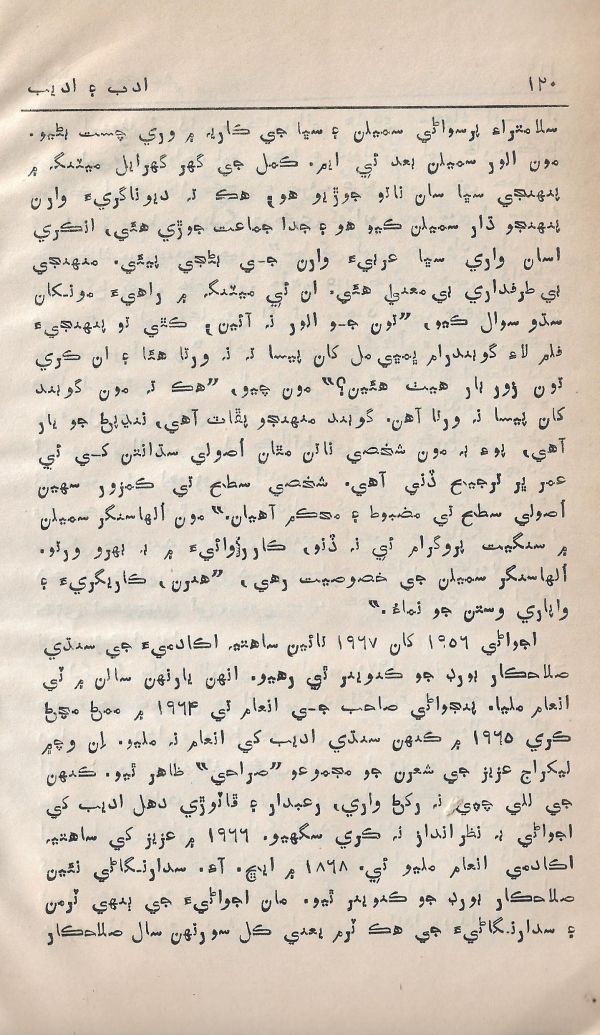 ۱۲۰ ادب ۽ اديب
سلامتراءِ پرسواڻي سميلن ۽ سڀا جي ڪاريہ ۾ وري چست بڻيو.
مون الور سميلن بعد ئي ايم. ڪمل جي گهر گهرايل ميٽنگ ۾
پنهنجي سڀا سان ناتو جوڙيو هو، هڪ تہ ديوناگريءَ وارن
پنهنجو ڌار سميلن ڪيو هو ۽ جدا جماعت جوڙي هئي، انڪري
اسان واري سڀا عربيءَ وارن جي ئي بڻجي پيئي. منهنجي
بي طرفداري بي معنيٰ هئي. ان ئي ميٽنگ ۾ راهيءَ مونکان
سڌو سوال ڪيو، ”تون جو الور نہ آئين، ڪٿي تو پنهنجيءَ
فلم لاءِ گوبندرام پمي مل کان پيسا تہ نہ ورتا هئا ۽ ان ڪري
تون زور بار هيٺ هئين؟“ مون چيو، ”هڪ تہ مون گوبند
کان پيسا نہ ورتا آهن. گوبند منهنجو ٻڦاٽ آهي، ننڍپڻ جو يار
آهي، پوءِ بہ مون شخصي ناتن مٿان اُصولي سڌانتن کي ئي
عمر ڀر ترجيح ڏني آهي. شخصي سطح تي ڪمزور سهين
اُصولي سطح تي مضبوط ۽ محڪم آهيان.“ مون اُلهاسنگر سميلن
۾ سنگيت پروگرام ئي نہ ڏنو، ڪاررُوائيءَ ۾ بہ بهرو ورتو.
اُلهاسنگر سميلن جي خصوصيت رهي، ”هنرن، ڪاريگريءَ ۽
واپاري وستن جو نماءُ.“
اجواڻي ۱۹۵٦ کان ۱۹٦۷ تائين ساهتيہ اڪادميءَ جي سنڌي
صلاحڪار بورڊ جو ڪنوينر ئي رهيو. انهن ٻارنهن سالن ۾ ٽي
انعام مليا. پنجواڻي صاحب جي انعام تي ۱۹٦۴ ۾ ممڻ مچڻ
ڪري ۱۹٦۵ ۾ ڪنهن سنڌي اديب کي انعام نہ مليو. اِن وچ ۾
ليکراج عزيز جي شعرن جو مجموعو ”صراحي“ ظاهر ٿيو. ڪنهن
جي للي چپي نہ رکڻ واري، رعبدار ۽ ڦاٽوڙي دهل اديب کي
اجواڻي بہ نظرانداز نہ ڪري سگهيو. ۱۹٦٦ ۾ عزيز کي ساهتيہ
اڪادمي انعام مليو ئي. ۱۸٦۸ ۾ ايڇ. آءِ. سدارنگاڻي نئين
صلاحڪار بورڊ جو ڪنوينر ٿيو. مان اجواڻيءَ جي ٻنهي ٽرمن
۽ سدارنگاڻيءَ جي هڪ ٽرم يعني ڪل سورنهن سال صلاحڪار